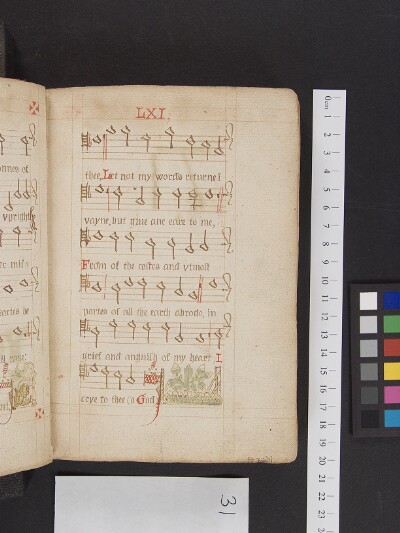 LXI.
thee, Let not my words returne I
vayne, but giue ane eare to me,
From of the costes and vtmost
partes of all the earth abrode, in
grief and anguish of my heart I
crye to thee (o God
onnes of
vpright
31
0cm 1 2 3 4 5 6 7 8 9 10 11 12 13 14 15 16 17 18 19 20 21 22 23 24